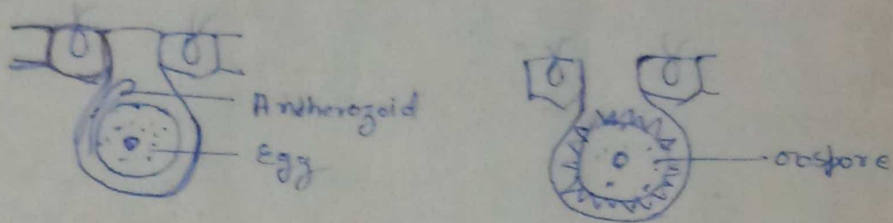 Antherozoid
Egg
oospore